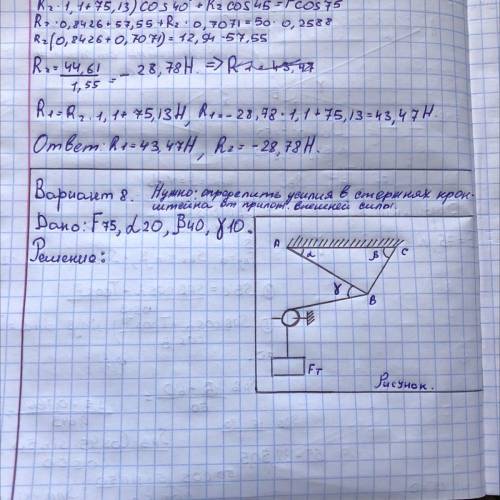 R₂·1,1+75,13)cos40°+R₂cos45=Fcos75
R₂·0,8426+57,55+R₂·0,7071=50·0,2588
R₂(0,8426+0,7071)=12,94-57,55
R₂=44,61/1,55=-28,78Н. => R1=43,47
R1=R₂·1,1+75,13Н, R1=-28,78·1,1+75,13=43,47Н.
Ответ: R1=43,47Н, R₂=-28,78Н.
Вариант 8. Нужно: определить усилия в стержнях крон-
штейна от прилож. внешней силы.
Дано: F75, α20, β40, γ10.
Решение:
A α β C
γ B
Fт
Рисунок.